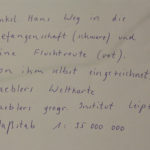 Onkel Hans Weg in die
Gefangenschaft (schwarz) und
seine Fluchtroute (rot).
Von ihm selbst eingezeichnet
Gaeblers Weltkarte
Gaeblers geogr. Institut Leipzig
Maßstab 1: 35 000 000